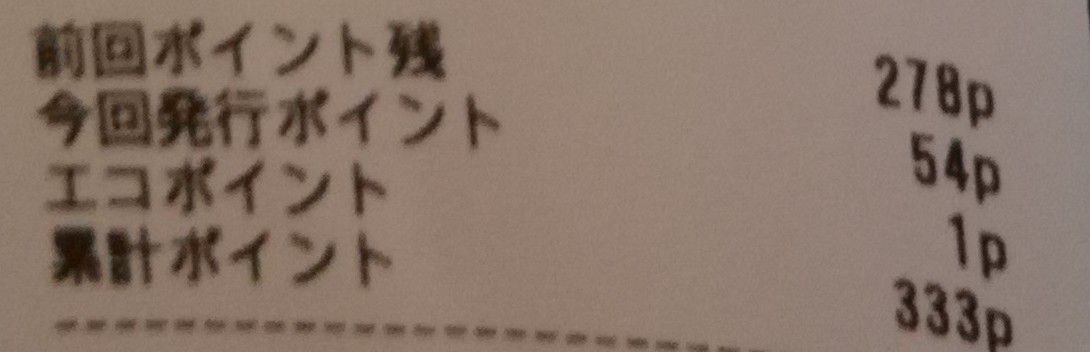 前回ポイント残 278p
今回発行ポイント 54p
エコポイント 1p
累計ポイント 333p
--------------------------------